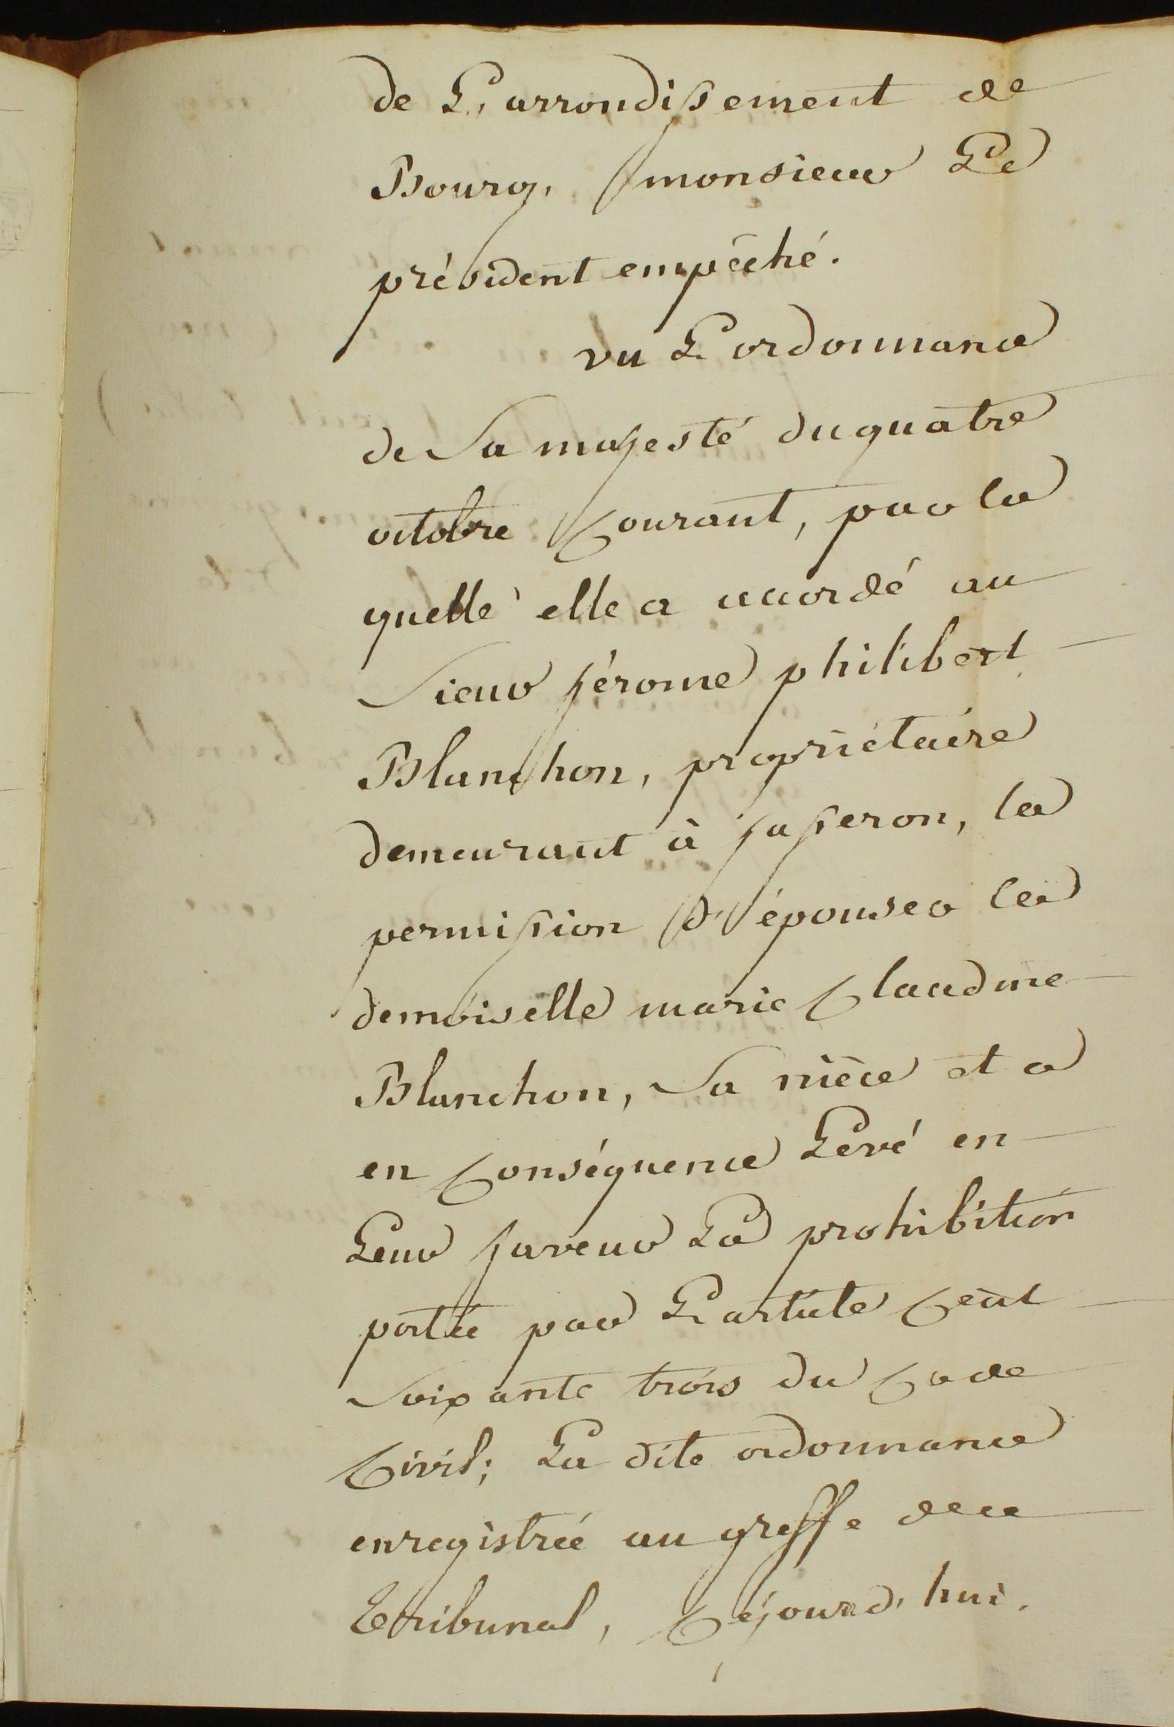 de L'arrondissement de
Bourg, monsieur Le
président empêché.
vu L'ordonnance
de Sa majesté du quatre
octobre Courant, par la
quelle elle a accordé au
Sieur jérome philibert
Blanchon, propriétaire
demeurant à jasseron, la
permission d'épouser la
demoiselle marie Claudine
Blanchon, Sa nièce et a
en Conséquence Levé en
Leur faveur La prohibition
portée par L'article Cent
Soixante trois du Code
Civil; La dite ordonnance
enregistrée au greffe de ce
tribunal, Cejourd'hui.